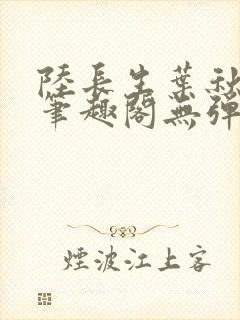 陸長生葉秋
筆趣閣無彈
煙波江上客